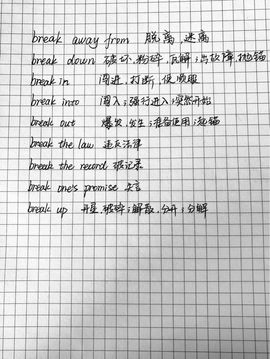 break away from 脱离,逃离
break down 破坏,粉碎,瓦解;出故障,抛锚
break in 闯进,打断,使顺服
break into 闯入;强行进入;突然开始
break out 爆发,发生;准备使用;起锚
break the law 违反法律
break the record 破记录
break one's promise 失言
break up 开垦,破碎;解散,分开;分解